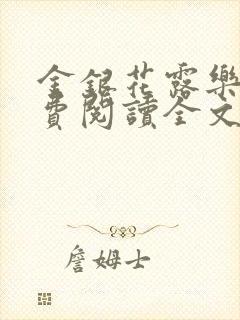 金銀花露樂
費閱讀全文
詹姆士